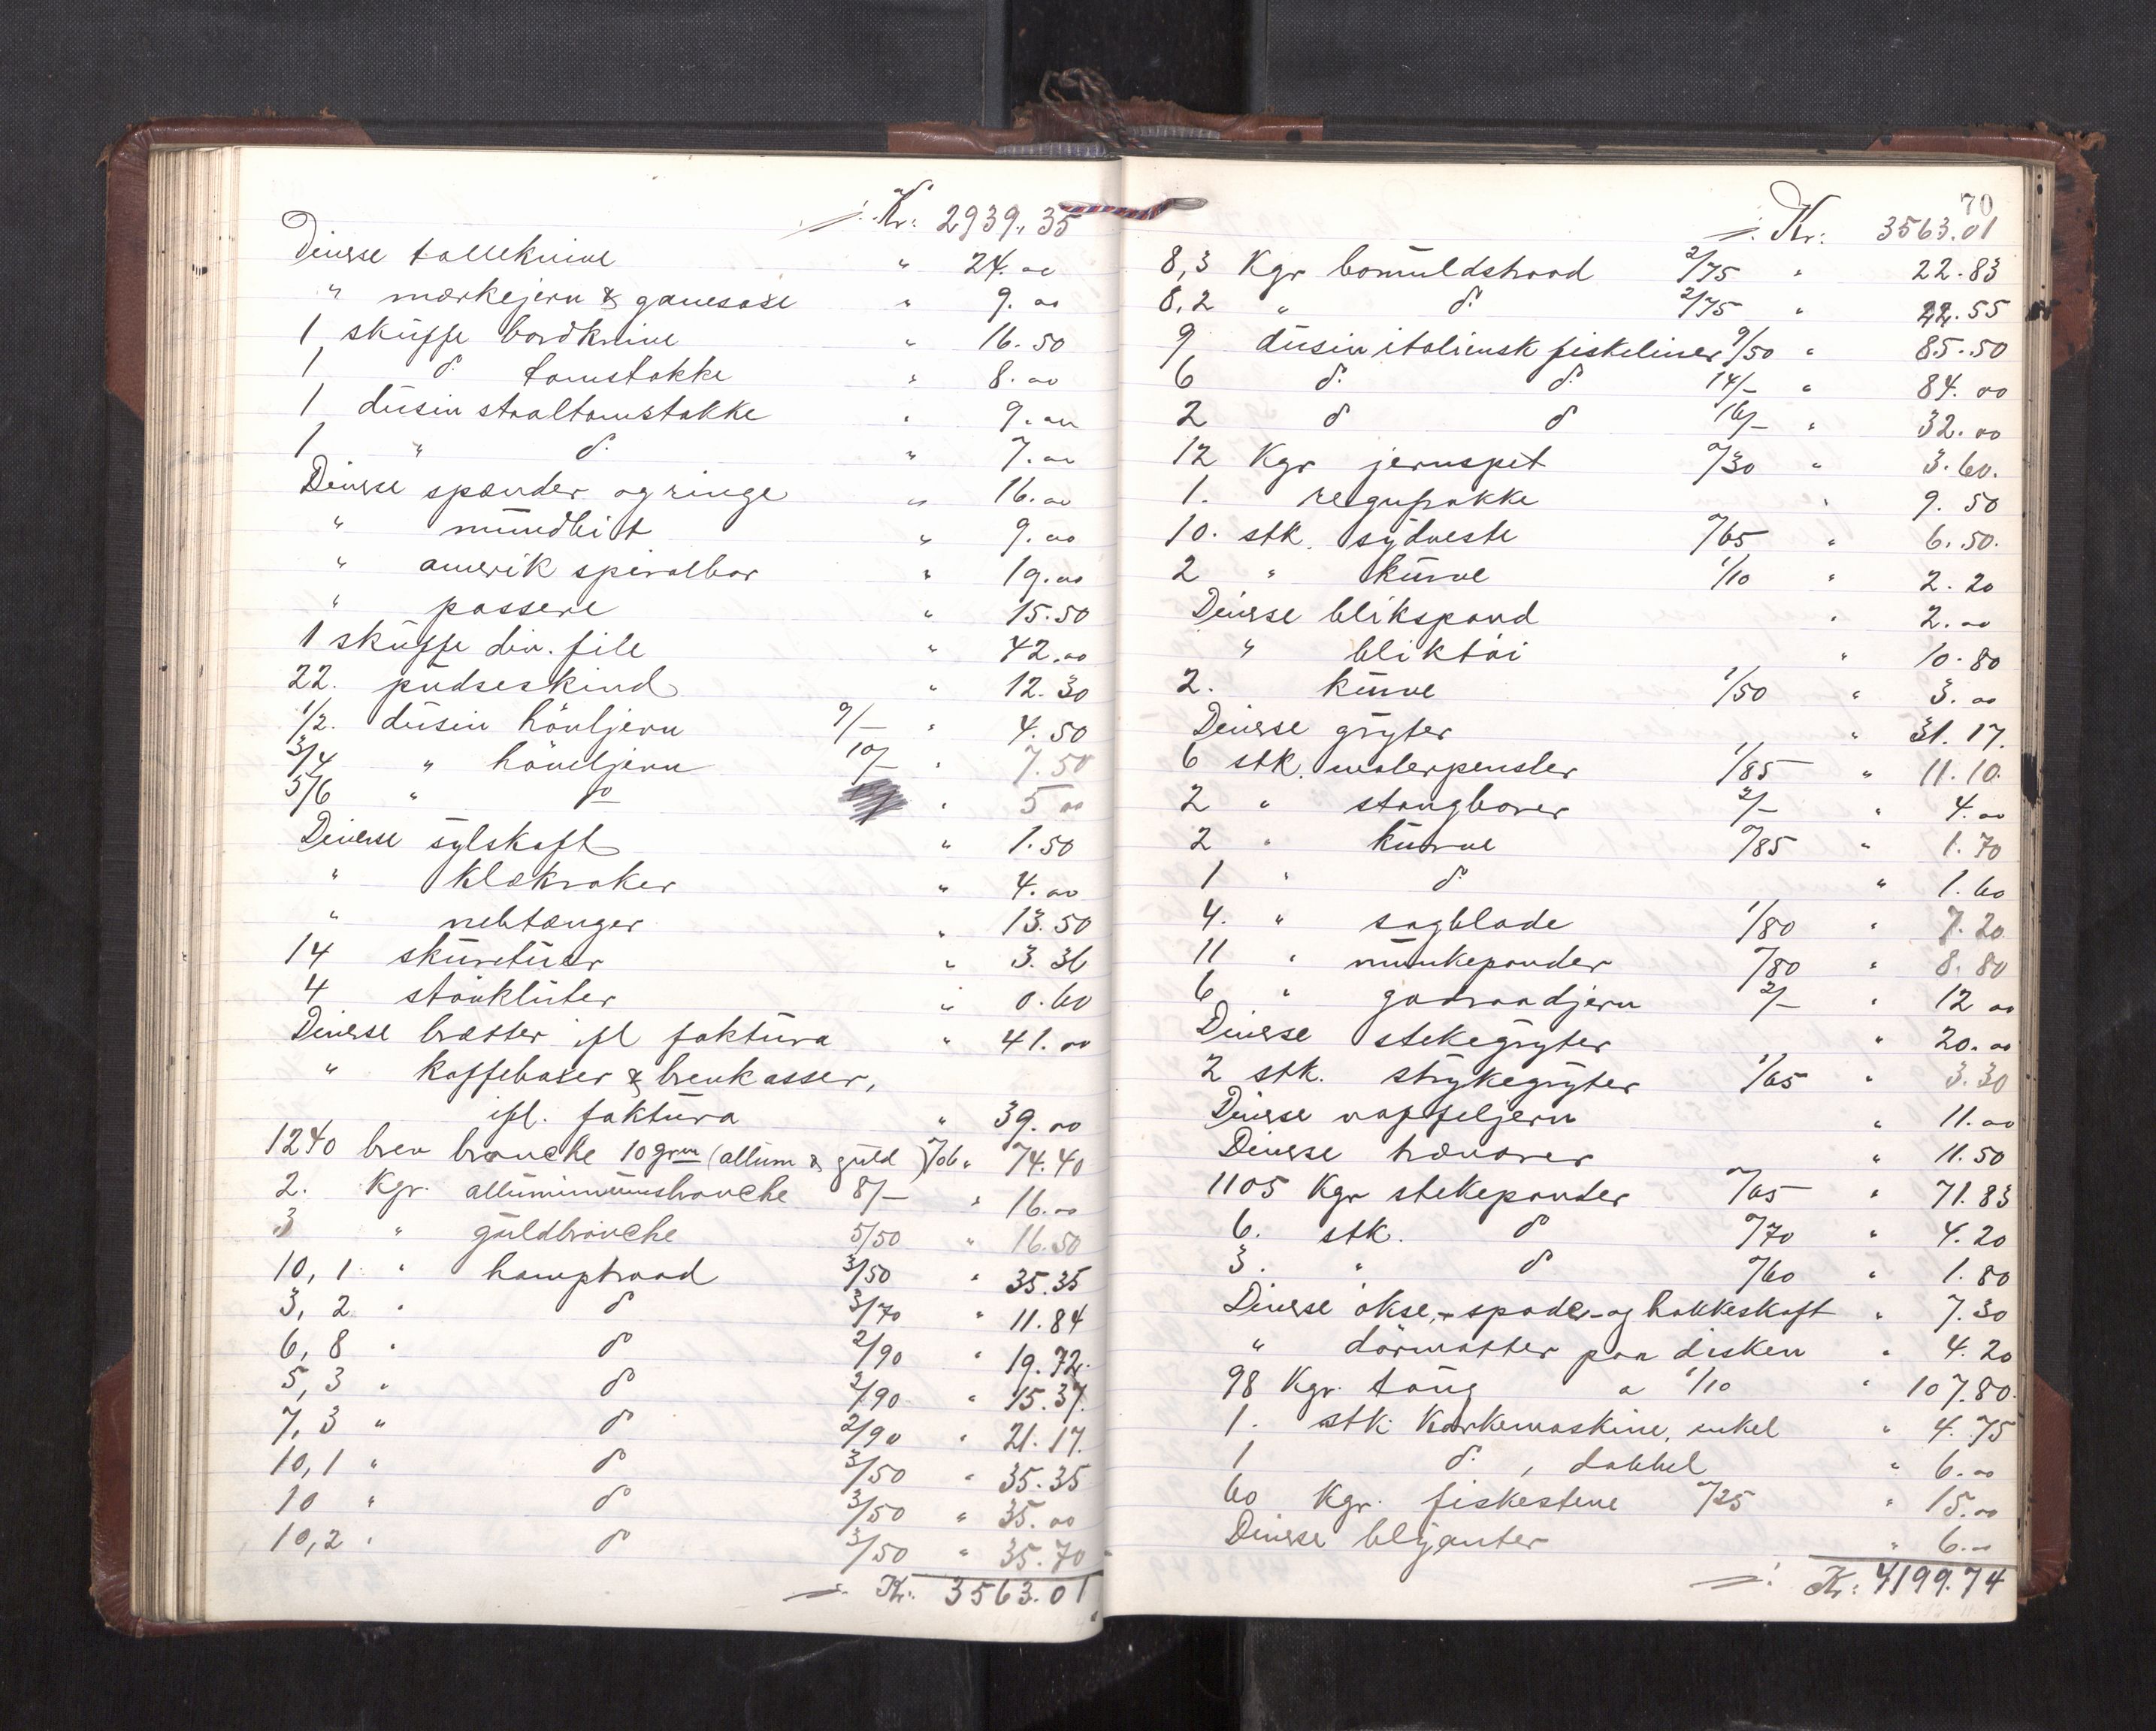 ./. Kr: 2939,, 35
Diverse tolleknive " 24.00
" mærkejern & ganesaxe " 9.00
1 skuffe bordknive " 16.50
1 do tomstokke " 8.00
1 dusin staaltomstokke " 9.00
1 " do " 7.00
Diverse spænder og ringe " 16.00
" mundbit " 9.00
" amerik spiralbor " 19.00
" passere " 15.50
1 skuffe div. file " 42.00
22. pudseskind " 12.30
1/2. dusin hövljern 9/- " 4.50
3/4 " hövljern 10/- " 7.50
5/6 " do " 5 00
Diverse sylskaft " 1.50
" klokraker " 4.00
" nebtænger " 13.50
14 skuretuer " 3.36
4 stövkluter " 0.60
Diverse brætter ifl faktura " 41.00
" kaffebøser & brevkasser,
ifl. faktura " 39.00
1240 brev bronche 10 grm (allum & guld) 0/06 " 74.40
2. Kgr. alluminiumsbronche 8/- " 16.00
3 " guldbronche 5/50 " 16.50
10,1 " hamptraad 3/50 " 35.35
3,2 " do 3/70 " 11.84
6,8 " do 2/90 " 19.72
5,3 " do 2/90 " 15.37
7,3 " do 2/90 " 21.17
10,1 " do 3/50 " 35.35
10 " do 3/50 " 35.00
10,2 " do 3/50 " 35.70
./. Kr. 3563.01
70
./. Kr: 3563.01
8,3 Kgr bomuldstraad 2/75 " 22.83
8,2 " do 2/75 " 22.55
9 dusin italiensk fiskeliner 9/50 " 85.50
6 do do 14/- " 84.00
2 do do 16/- " 32.00
12 Kgr jernspet 0/30 " 3.60.
1. regnfrakke " 9.50
10. stk. sydveste 0/65 " 6.50.
2 " kurve 1/10 " 2.20
Diverse blikspand " 2.00
" bliktöi " 10.80
2. kurve 1/50 " 3.00
Diverse gryter " 31.17.
6 stk. malerpensler 1/85 " 11.10.
2 " stangborer 2/- " 4.00
2 " kurve 0/85 " 1.70
1 " do " 1.60
4. " sagblade 1/80 " 7.20
11 " munkepander 0/80 " 8.80
6 " godraadjern 2/- " 12 00
Diverse stekegryter " 20.00
2 stk. strykegryter 1/65 " 3.30
Diverse vaffeljern " 11.00
Diverse trævarer " 11.50
1105 Kgr stekepander 0/65 " 71.83
6. stk. do 0/70 " 4.20
3. " do 0/60 " 1.80
Diverse økse-, spade- og hakkeskaft " 7.30
" dörmatter paa disken " 4.20
98 Kgr. taug a 1/10 " 107.80.
1. stk. korkemaskine, enkel " 4.75
1 do , dobbel " 6.00
60 Kgr. fiskestene 0/25 " 15.00
Diverse blyanter " 6.00
./. Kr: 4199.74